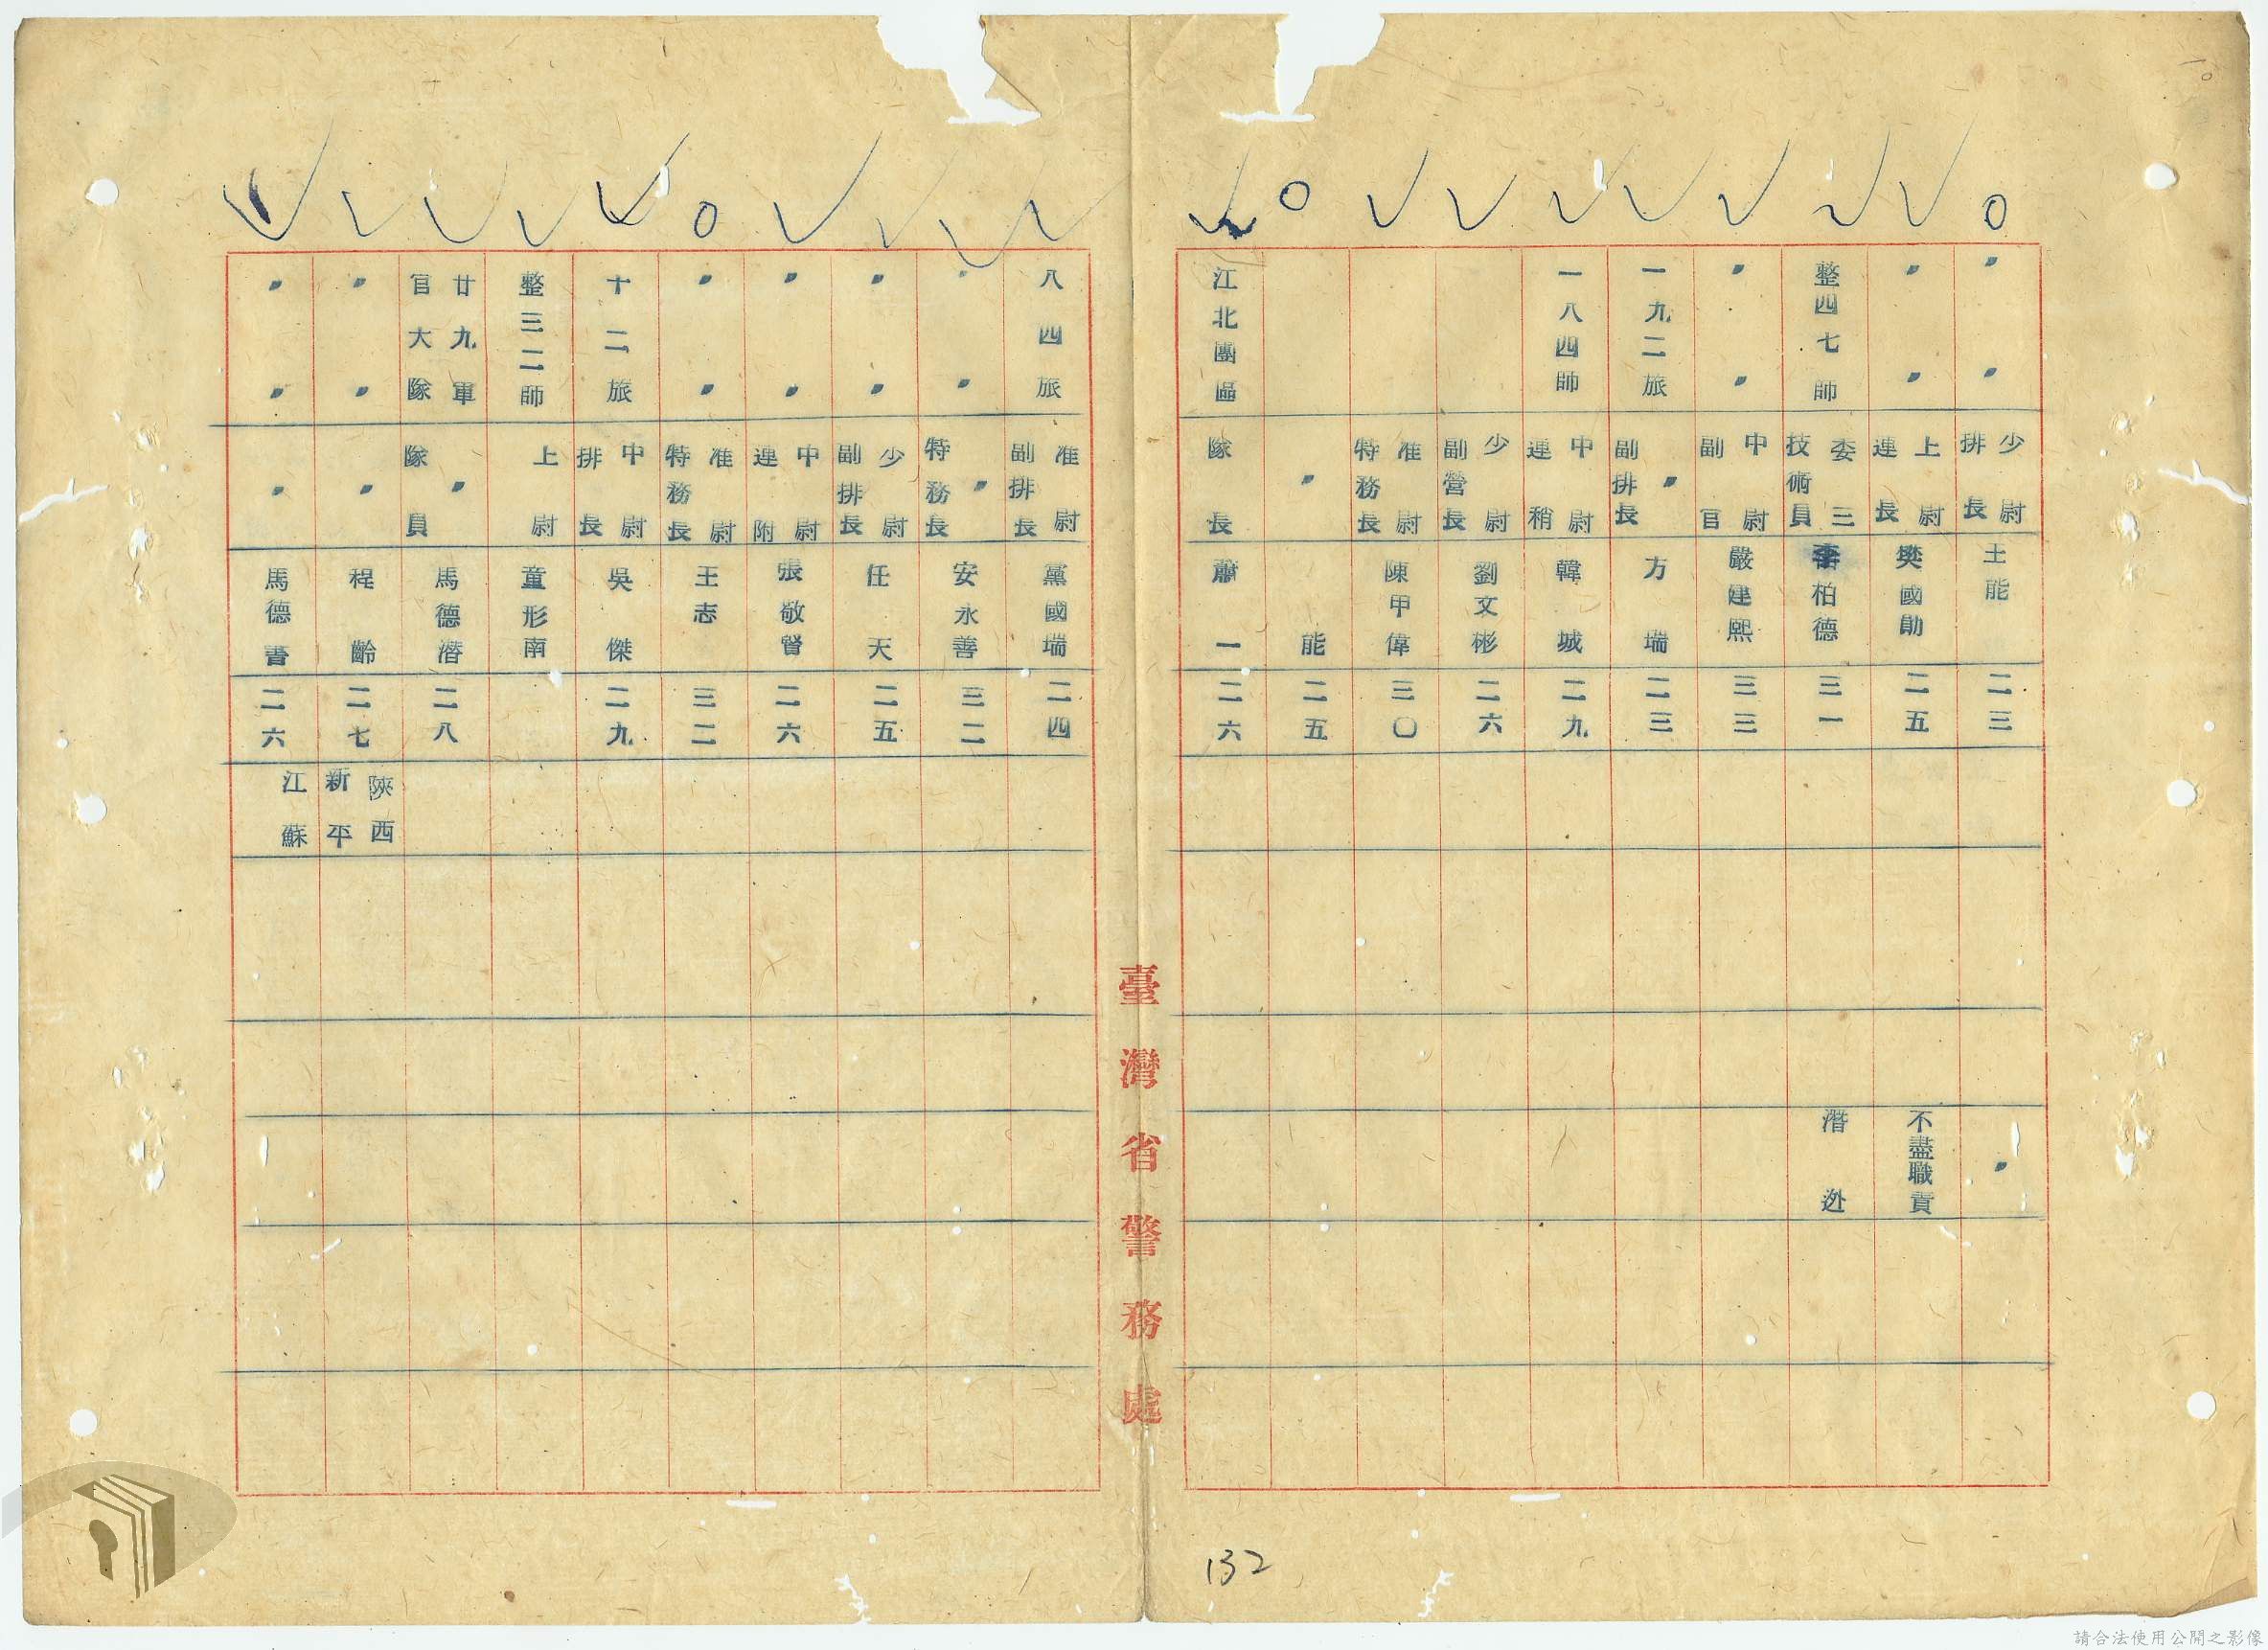 一〇
〃 〃 少尉排長 王能 二三 〃
〃 〃 上尉連長 樊國勛 二五 不盡職責
整四七師 委三技術員 李柏德 三一 潛逃
〃 〃 中尉副官 嚴建熙 三三
一九二旅 〃 副排長 方瑞 二三
一八四師 中尉連稍 韓城 二九
少尉副營長 劉文彬 二六
准尉特務長 陳甲偉 三〇
〃 能 二五
江北團區 隊長 蕭一 二六
臺灣省警務處
八四旅 准尉副排長 黨國瑞 二四
〃 〃 〃 特務長 安永善 三二
〃 〃 少尉副排長 任天 二五
〃 〃 中尉連附 張敬賢 二六
〃 〃 准尉特務長 王志 三二
十二旅 中尉排長 吳傑 二九
整三二師 上尉 童形南
廿九軍官大隊 〃 隊員 馬德潛 二八
〃 〃 〃 程齡 二七 陝西新平
〃 〃 〃 馬德書 二六 江蘇
132
請合法使用公開之影像